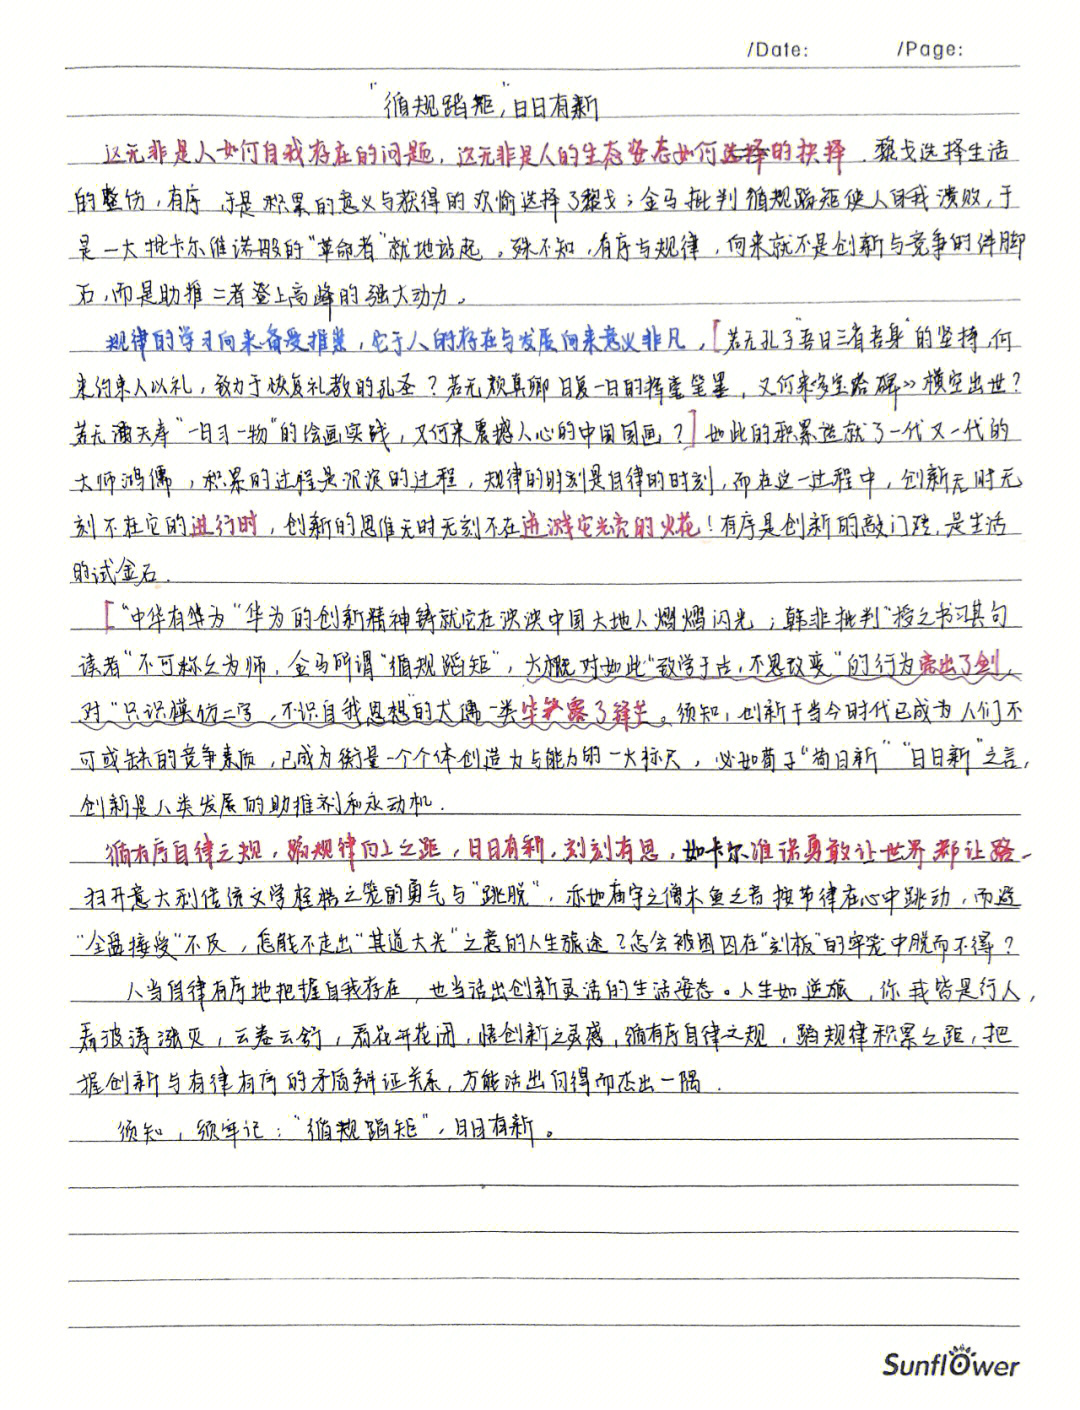 /Date: /Page:
"循规蹈矩",日日有新
这无非是人如何自我存在的问题,这无非是人的生态姿态如何选择的抉择.黎戈选择生活
的整饬,有序,于是积累的意义与获得的欢愉选择了黎戈;金马批判循规蹈矩使人自我溃败,于
是一大批卡尔维诺般的"革命者"就地站起。殊不知,有序与规律,向来就不是创新与竞争的绊脚
石,而是助推二者登上高峰的强大动力。
规律的学习向来备受推崇,它于人的存在与发展向来意义非凡,[若无孔子"吾日三省吾身"的坚持,何
来约束人以礼,致力于恢复礼教的孔圣?若无颜真卿日复一日的挥毫笔墨,又何来多宝塔碑》横空出世?
若无潘天寿"一日习一物"的绘画实践,又何来震撼人心的中国国画?]如此的积累造就了一代又一代的
大师鸿儒,积累的过程是沉淀的过程,规律的时刻是自律的时刻,而在这一过程中,创新无时无
刻不在它的进行时,创新的思维无时无刻不在迸溅它光亮的火花!有序是创新的敲门砖,是生活
的试金石.
["中华有华为"华为的创新精神铸就它在泱泱中国大地人熠熠闪光;韩非批判"授之书习其句
读者"不可称之为师,金马所谓"循规蹈矩",大概对如此"教学于古,不思改变"的行为亮出了剑,
对"只识模仿二字,不识自我思想"的大儒一类毕露了锋芒。须知,创新于当今时代已成为人们不
可或缺的竞争素质,已成为衡量一个个体创造力与能力的一大标尺,必如荀子"苟日新""日日新"之言,
创新是人类发展的助推剂和永动机.
循有序自律之规,蹈规律向上之距,日日有新,刻刻有思,如卡尔维诺勇敢让世界都让路-
扫开意大利传统文学桎梏之笼的勇气与"跳脱",亦如庙宇之僧木鱼之音按节律在心中跳动,而避
"全盘接受"不及,怎能不走出"其道大光"之意的人生旅途?怎会被困囚在"刻板"的牢笼中脱而不得?
人当自律有序地把握自我存在,也当活出创新灵活的生活姿态。人生如逆旅,你我皆是行人,
看波涛涨灭,云卷云舒,看花开花闭,悟创新之灵感,循有序自律之规,蹈规律积累之距,把
握创新与有律有序的矛盾辩证关系,方能活出自得而杰出一隅.
须知,须牢记:"循规蹈矩",日日有新。
Sunflower